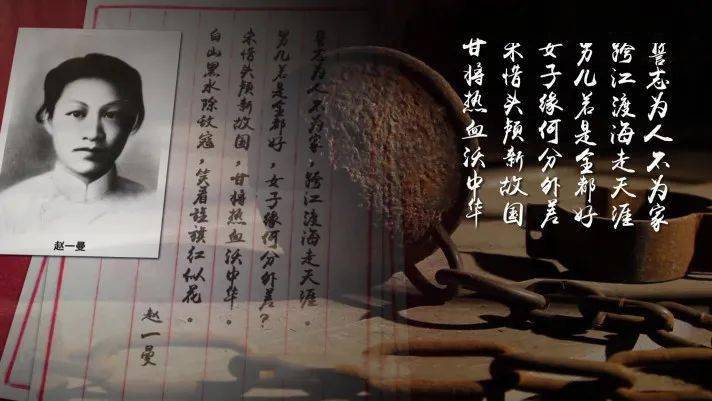 誓志为人不为家
跨江渡海走天涯
男儿若是全都好
女子缘何分外差
未惜头颅新故国
甘将热血沃中华
誓志为人不为家，跨江渡海走天涯。
男儿若是全都好，女子缘何分外差？
未惜头颅新故国，甘将热血沃中华。
白山黑水除敌寇，笑看旌旗红似花。
赵一曼
赵一曼